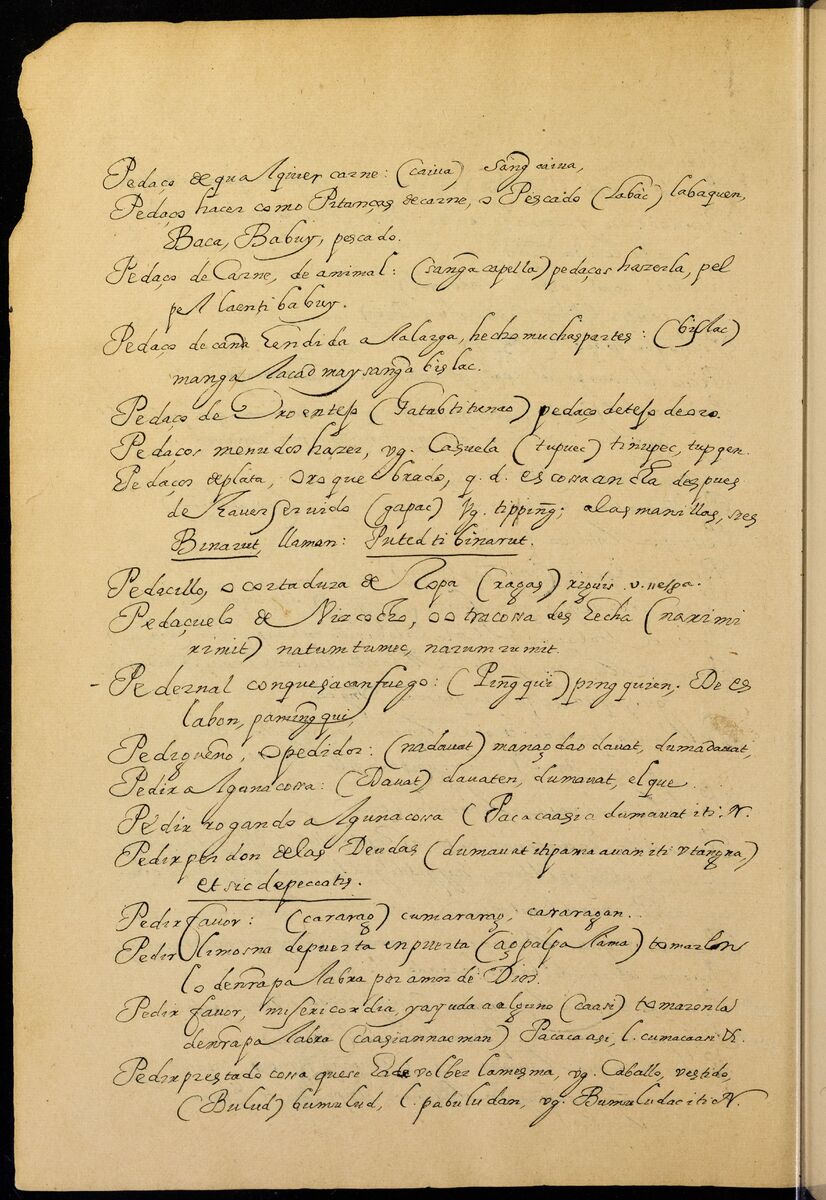 Pedaço de qualquier carne: (caiua) sang̃caiua,
Pedaços hacer como Pitanças de carne, o Pescado (labàc) labaquen,
Baca, Babuy, pescado.
Pedaço de Carne, de animal: (sang̃a capella) pedaços hazerla, pel
pellaenti babuy.
Pedaço de caña hendida a la larga, hecho muchas partes: (bislac)
manga lacad may sang̃a bislac.
Pedaço de Oro en tejo (Gatabtitunao) pedaço de tejo de oro.
Pedaços menudos hazer, vg. Casuela (tupuec) tinupec, tupqen.
Pedaços de plata, oro quebrado, q. d. es cossa ancha despues
de hauer seruido (gapac) vg. tipping̃; a las manillas, sies
Binarut, llaman: Putedti binarut.
Pedacillo, o cortadura de Ropa (ragas) rigùis v. nespa.
Pedaçuelo de Vizcocho, o otra cossa deshecha (narimi
rimit) natumtumec, narumrumit.
- Pedernal con que sacan fuego: (Ping̃qui) pingquien. De es
labon, paming̃qui,
Pedigueño, o pedidor: (nadauat) manag̃dao dauat, dumadauat,
Pedir alguna cossa: (Dauat) dauaten, dumauat, el que.
Pedir rogando alguna cossa (Pacacaasi a dumauat iti. N.
Pedir perdon de las Deudas (dumauat iti pamaauan iti vtang̃na,)
et sic de peccatis.
Pedir fauor: (cararag) cumararag, cararagan.
Pedir limosna de puerta en puerta (agpalpallama) tomarlon
lo den̄ra palabra por amor de Dios.
Pedir fauor, misericordia, y ayuda a alguno (caasi) tomaronla
den̄ra palabra (caasiannacman) Pacacaasi, l. cumacaasi &.
Pedir prestado cossa que se hade volber la mesma, vg. Caballo, vestido,
(Bulud) bumulud, l. pabuludan, vg. Bumuludac iti N.